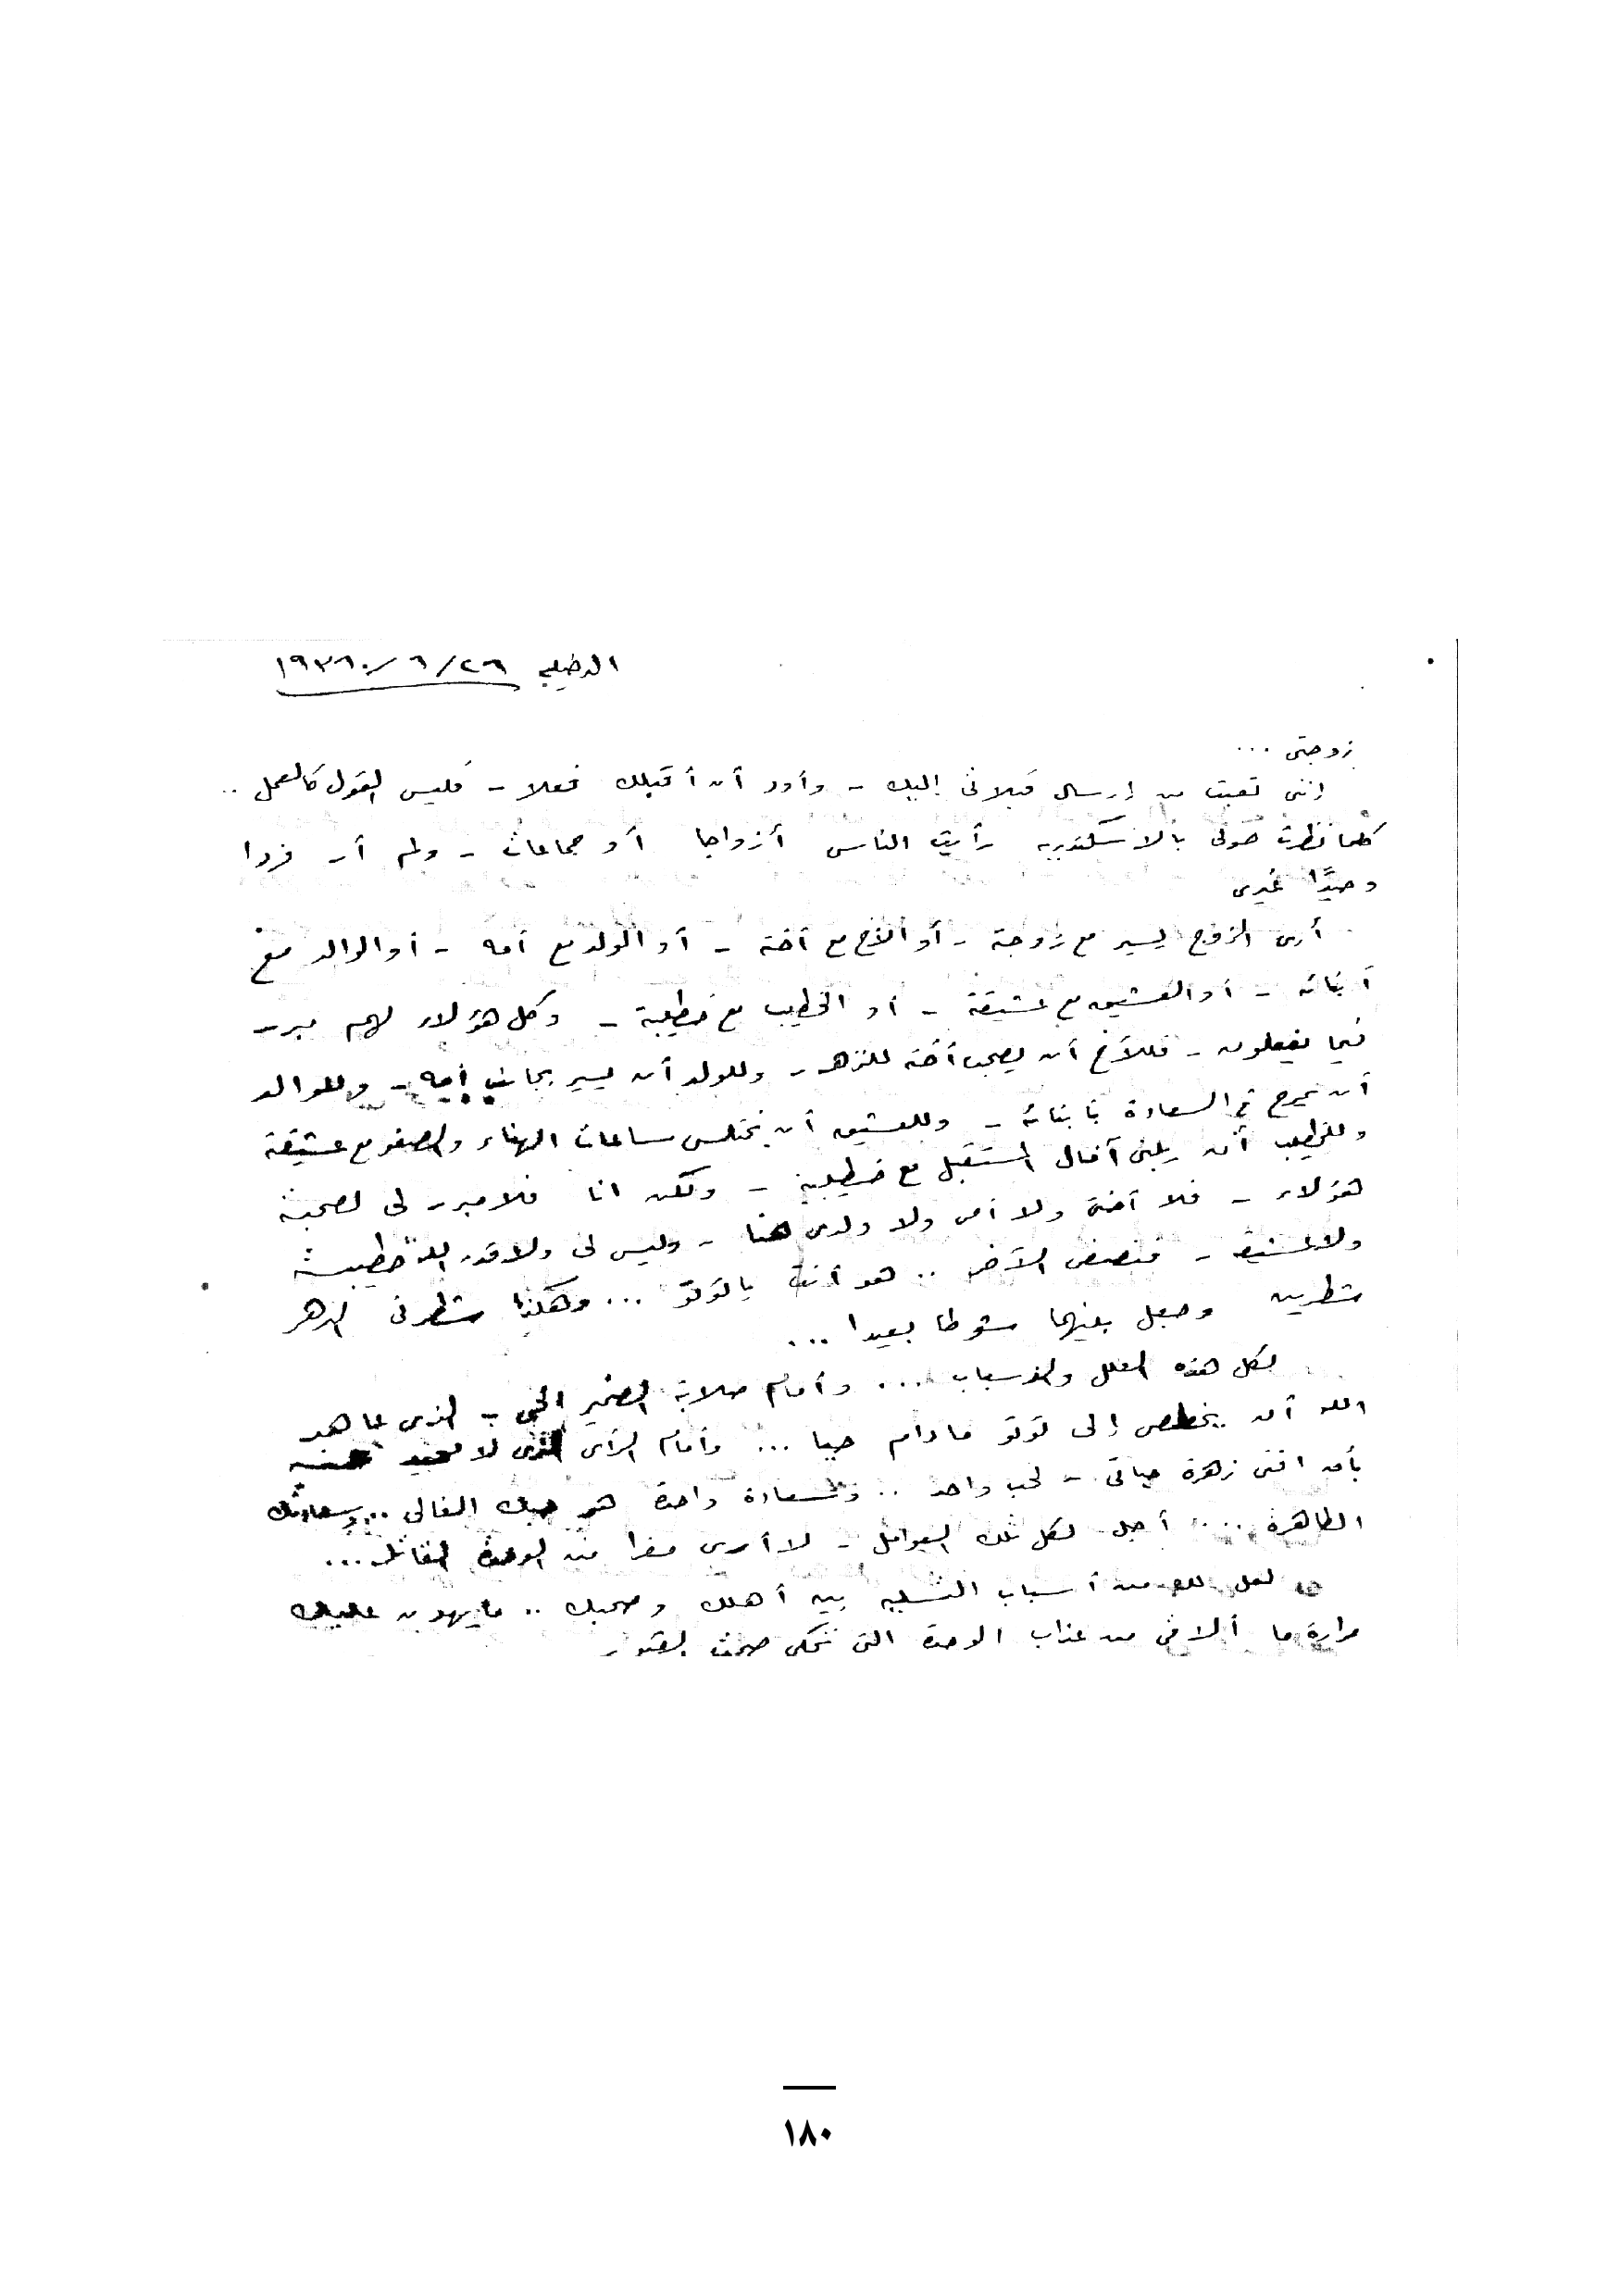 الدخيلة ٢٦/ ٦/ ١٩٣٦
زوجتى ...
إننى تعبت من إرسال قبلاتى إليك - وأود أن أقبلك فعلا - فليس القول كالعمل ..
كلما نظرت حولى بالاسكندرية رأيت الناس أزواجا أو جماعات - ولم أر فردا
وحيدًا غيرى
أرى الزوج يسير مع زوجته - أو الأخ مع أخته - أو الولد مع أمه - أو الوالد مع
أبنائه - أو العشيق مع عشيقته - أو الخطيب مع خطيبته - وكل هؤلاء لهم مبرر
فيما يفعلون - فللأخ أن يصحب أخته للنزهه - وللولد أن يسير بجانب أمه - وللوالد
أن يمرح فى السعادة بأبنائه - وللعشيق أن يختلس ساعات الهناء والصفو مع عشيقته
وللخطيب أن يبنى آمال المستقبل مع خطيبته - ولكن انا فلا مبرر لى لصحبة
هؤلاء - فلا أختى ولا أمى ولا ولدى هنا - وليس لى ولا قدر الله خطيبة
ولا عشيقة - فنصفى الآخر .. هو أنت يا توتو ... وهكذا شطرنى الدهر
شطرين وجعل بينهما شوطا بعيدا ...
لكل هذه العلل والأسباب .... وأمام صلابة الضمير الحى - الذى عاهد
الله أن يخلص إلى توتو مادام حيا ... وأمام الرأى الذى لا
بأن افنى زهرة حياتى - لحب واحد .. ولسعادة واحدة هو حبك الغالى .. وسعادتك
الطاهرة .... أجل لكل تلك العوامل - لا أرى مفرا من الوحدة القاتله ...
لعل لك من أسباب التسلية بين أهلك وصحبك .. ما يهون عليك
مرارة ما ألاقى من عذاب الوحدة التى تحكى صمت القبور
١٨٠